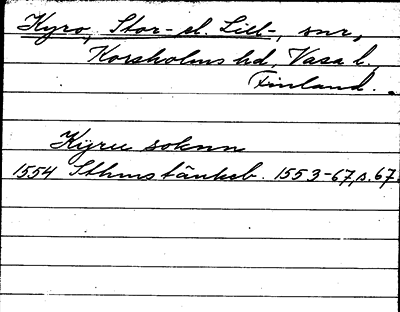 Kyro, Stor- el. Lill-, snr,
Korsholms hd, Vasa l.,
Finland.
Kyru soknn
1554 Sthms tänkeb. 1553-67, s. 67.